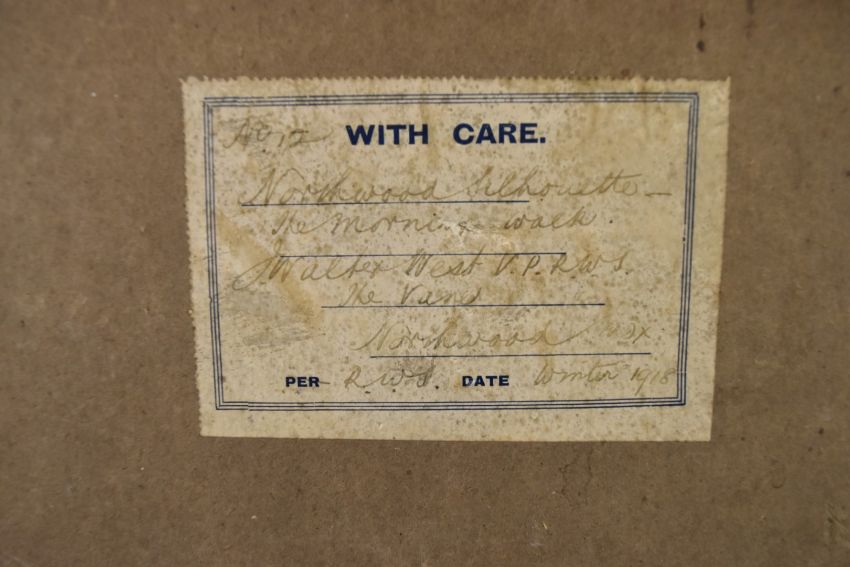 No 12 WITH CARE.
Northwood Silhouette —
The Morning walk.
J. Walter West V.P. R.W.S.
The Vanes
Northwood
PER R.W.S. DATE Winter 1918